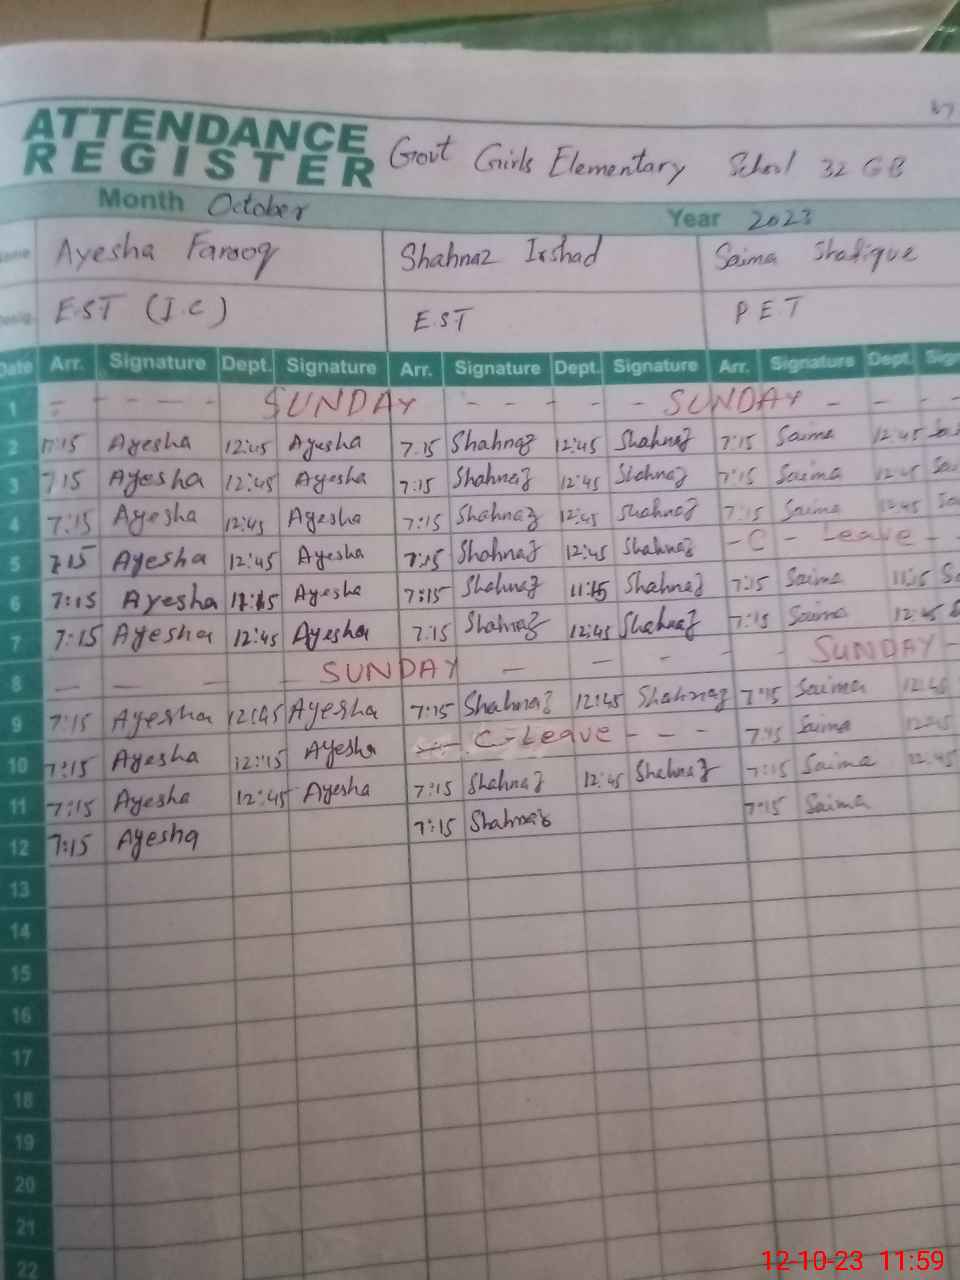 ATTENDANCE
REGISTER Govt Girls Elementary School 32 GB
Month October Year 2023
Name Ayesha Farooq Shahnaz Irshad Saima Shafique
Desig. E.S.T (I.C) E.S.T P.E.T
Date Arr. Signature Dept. Signature Arr. Signature Dept. Signature Arr. Signature Dept.
1 SUNDAY SUNDAY
2 7:15 Ayesha 12:45 Ayesha 7:15 Shahnaz 12:45 Shahnaz 7:15 Saima 12:45
3 7:15 Ayesha 12:45 Ayesha 7:15 Shahnaz 12:45 Shahnaz 7:15 Saima 12:45
4 7:15 Ayesha 12:45 Ayesha 7:15 Shahnaz 12:45 Shahnaz 7:15 Saima 12:45
5 7:15 Ayesha 12:45 Ayesha 7:15 Shahnaz 12:45 Shahnaz - C - Leave - -
6 7:15 Ayesha Ayesha 7:15 Shahnaz 11:15 Shahnaz 7:15 Saima 11:15
7 7:15 Ayesha 12:45 Ayesha 7:15 Shahnaz 12:45 Shahnaz 7:15 Saima 12:45
8 SUNDAY SUNDAY
9 7:15 Ayesha 12:45 Ayesha 7:15 Shahnaz 12:45 Shahnaz 7:15 Saima 12:45
10 7:15 Ayesha Ayesha C - Leave - - - 7:15 Saima 12:45
11 7:15 Ayesha 12:45 Ayesha 7:15 Shahnaz 12:45 Shahnaz 7:15 Saima 12:45
12 7:15 Ayesha 7:15 Shahnaz 7:15 Saima
13
14
15
16
17
18
19
20
21
22
12-10-23 11:59